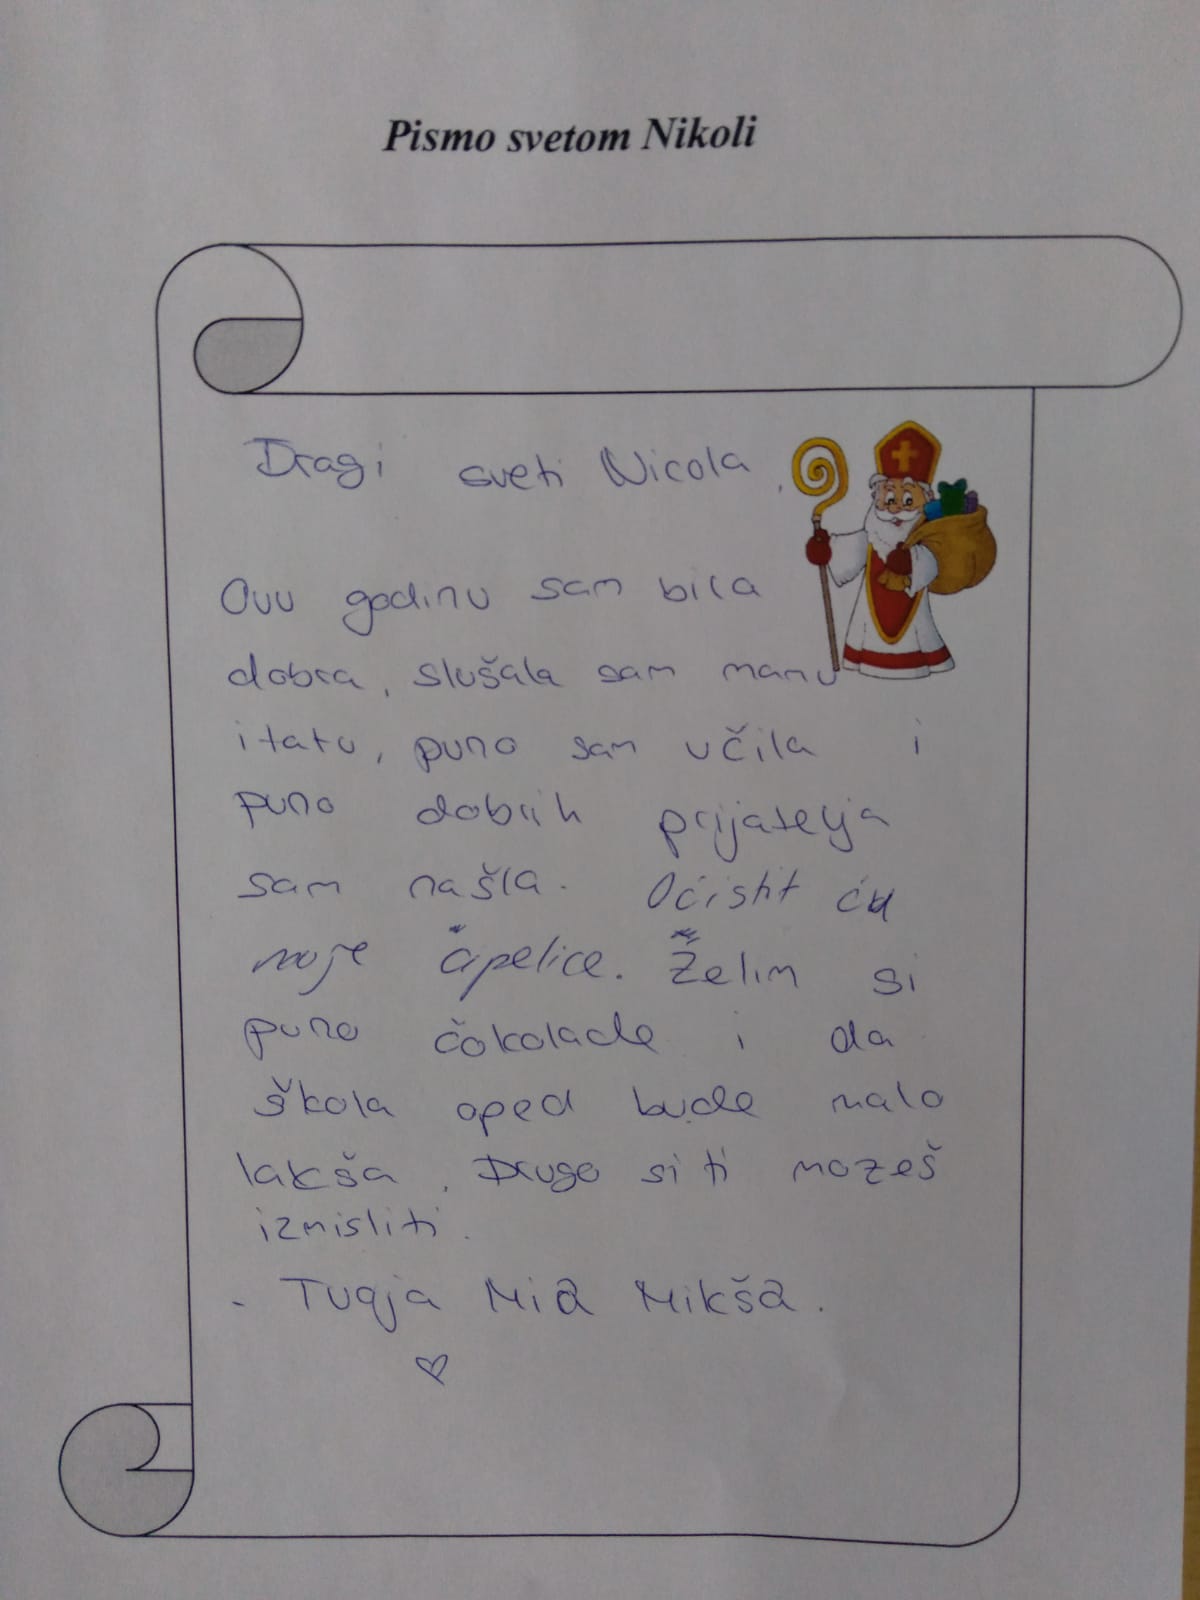 Pismo svetom Nikoli
Dragi sveti Nicola,
Ovu godinu sam bila
dobra, slušala sam mamu
i tatu, puno sam učila i
puno dobrih prijatelja
sam našla. Oćistit ću
moje čipelice. Želim si
puno čokolade i da
škola oped bude malo
lakša. Drugo si ti mozeš
izmisliti.
- Tvoja Mia Mikša.